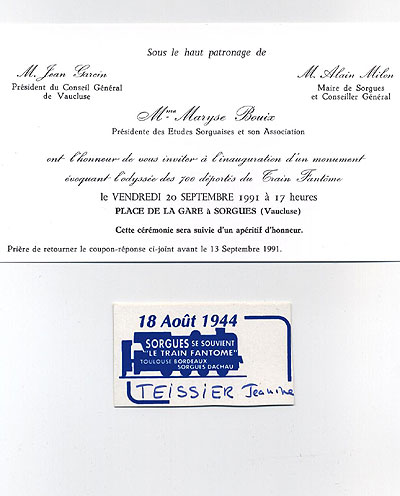 Sous le haut patronage de
M. Jean Garcin
Président du Conseil Général
de Vaucluse
M. Alain Milon
Maire de Sorgues
et Conseiller Général
Mme Maryse Bouix
Présidente des Etudes Sorguaises et son Association
ont l'honneur de vous inviter à l'inauguration d'un monument
évoquant l'odyssée des 700 déportés du Train Fantôme
le VENDREDI 20 SEPTEMBRE 1991 à 17 heures
PLACE DE LA GARE à SORGUES (Vaucluse)
Cette cérémonie sera suivie d'un apéritif d'honneur.
Prière de retourner le coupon-réponse ci-joint avant le 13 Septembre 1991.
18 Août 1944
SORGUES SE SOUVIENT
"LE TRAIN FANTOME"
TOULOUSE BORDEAUX
SORGUES DACHAU
TEISSIER Jeanine